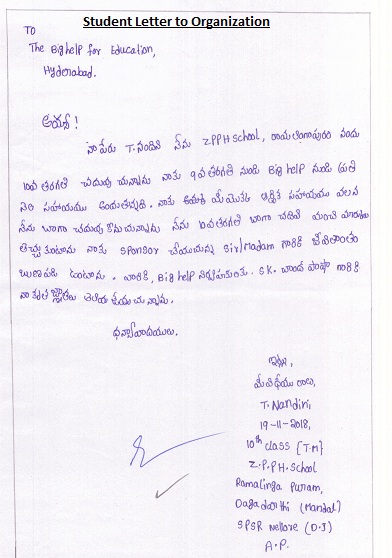 Student Letter to Organization
TO
The Big help for Education,
Hyderabad.
అయ్యా!
నా పేరు T. నందిని నేను ZPPH School, రామలింగాపురం నందు
10వ తరగతి చదువు చున్నాను నాకు 9వ తరగతి నుండి Big help నుండి ప్రతి
నెల సహాయము అందుతున్నది. నాకు ఈ ఆర్థిక సహాయము వలన
నేను బాగా చదువు కొనుచున్నాను నేను 10వ తరగతి బాగా చదివి మంచి మార్కులు
తెచ్చుకుంటాను నాకు sponsor చేయుచున్న Sir/Madam గారికి జీవితాంతం
ఋణపడి ఉంటాను. వారికి, Big help నిర్వాహకులు. S.K. చాంద్ పాషా గారికి
నా కృతజ్ఞతలు తెలియ చేయు చున్నాను.
ధన్యవాదములు.
ఇట్లు,
మీ విధేయురాలు,
T. Nandini,
19-11-2018,
10th class {T.M}
Z.P.P.H. School
Ramalinga Puram,
Dagadarthi (Mandal)
SPSR Nellore (D.J)
A.P.